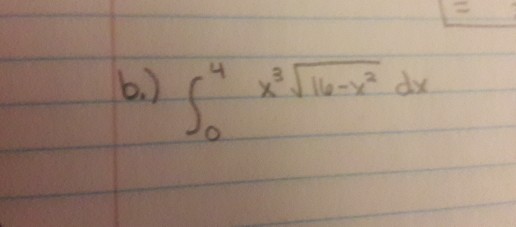 =
b.) ∫₀⁴ x³ √(16-x²) dx